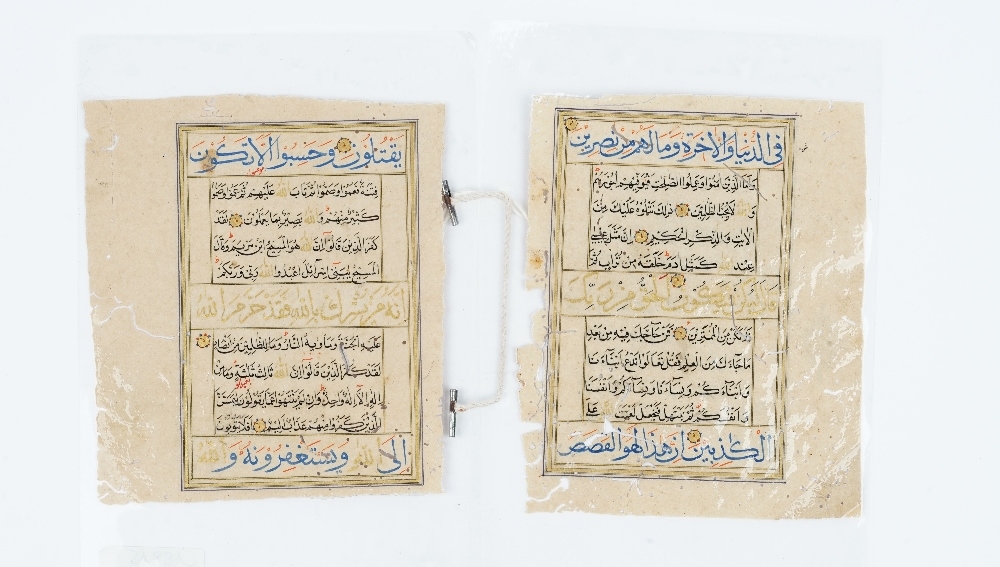 في الدنيا والاخرة وما لهم من نصرين
واما الذين امنوا وعملوا الصلحت فيوفيهم اجورهم
والله لا يحب الظلمين ذلك نتلوه عليك من
الايت والذكر الحكيم ان مثل عيسى
عند الله كمثل ادم خلقه من تراب ثم
قال له كن فيكون الحق من ربك
فلا تكن من الممترين فمن حاجك فيه من بعد
ما جاءك من العلم فقل تعالوا ندع ابناءنا
وابناءكم ونساءنا ونساءكم وانفسنا
وانفسكم ثم نبتهل فنجعل لعنت الله على
الكذبين ان هذا لهو القصص
يقتلون وحسبوا الا تكون
فتنة فعموا وصموا ثم تاب الله عليهم ثم عموا وصموا
كثير منهم والله بصير بما يعملون لقد
كفر الذين قالوا ان الله هو المسيح ابن مريم وقال
المسيح يبني اسرائل اعبدوا الله ربي وربكم
انه من يشرك بالله فقد حرم الله
عليه الجنة وماويه النار وما للظلمين من انصار
لقد كفر الذين قالوا ان الله ثالث ثلثة وما من
اله الا اله واحد وان لم ينتهوا عما يقولون ليمسن
الذين كفروا منهم عذاب اليم افلا يتوبون
الى الله ويستغفرونه والله